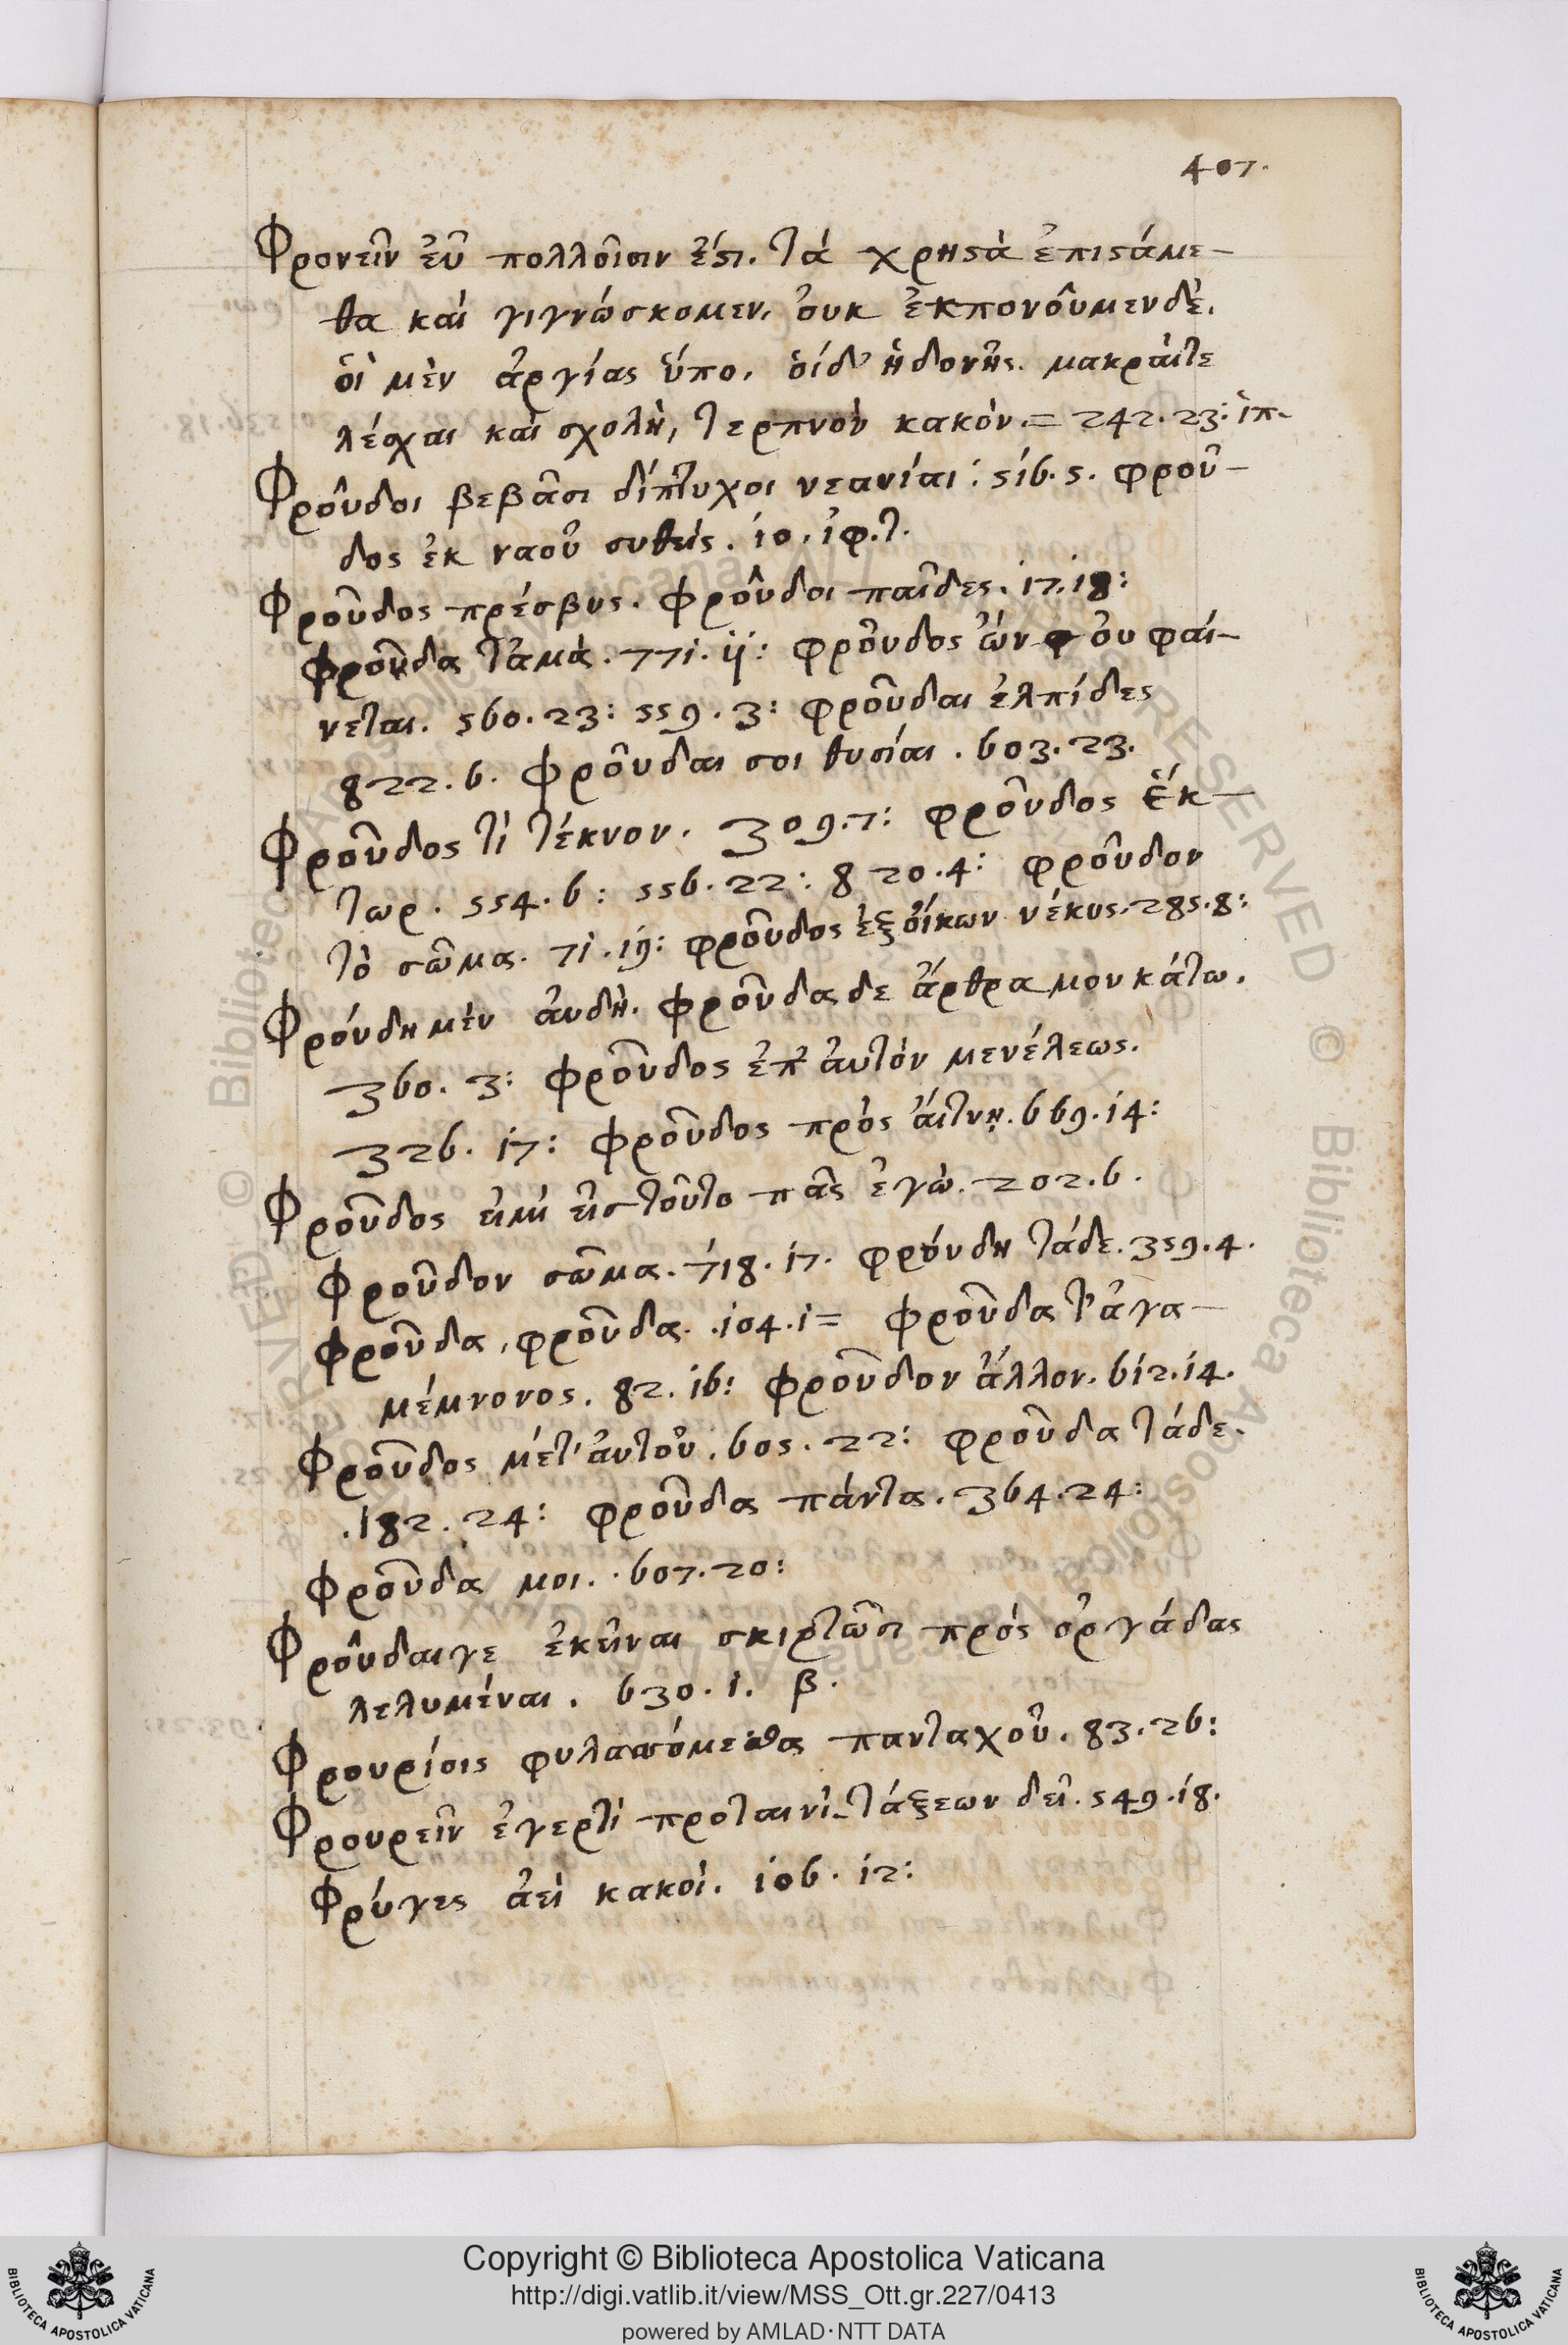 407.
Φρονεῖν ἐῦ πολλοῖσιν ἐϛι. τά χρηϛὰ ἐπιϛάμε-
θα καί γιγνώσκομεν, ὀυκ ἐκπονοῦμενδὲ.
ὁι μὲν ἀργίας ὕπο, ὁίδ' ἡδονῆς. μακράιτε
λέσχαι καὶ σχολὴ, τερπνὸν κακόν.= 242.23: ἱπ.
Φροῦδοι βεβᾶσι δίπτυχοι νεανίαι: 516.5. φροῦ-
δος ἐκ ναοῦ συθείς. 10. ἰφ.τ.
Φροῦδος πρέσβυς. φροῦδοι παῖδες. 17.18:
φροῦδα τἀμὰ. 771.11: φροῦδος ὢν ὀυ φαί-
νεται. 560.23: 559.3: φροῦδαι ἐλπίδες
822.6. φροῦδαι σοι θυσίαι. 603.23.
Φροῦδος τί τέκνον. 309.7: φροῦδος Ἕκ-
τωρ. 554.6: 556.22: 820.4: φροῦδον
τὸ σῶμα. 71.19: φροῦδος ἐξὄικων νέκυς. 285.8:
Φρόυδη μὲν ἀυδὴ. φροῦδα δε ἄρθρα μου κάτω.
360.3: φροῦδος ἐπ' ἀυτόν μενέλεως.
326.17: φροῦδος πρὸς ἄιτνῃ. 669.14:
Φροῦδος ειμι εἰς τοῦτο πᾶς ἐγὼ. 202.6.
φροῦδον σῶμα. 718.17. φρόυδη τάδε. 359.4.
φροῦδα, φροῦδα. .104.1= φροῦδα τ'ἀγα-
μέμνονος. 82.16: φροῦδον ἄλλον. 612.14.
Φροῦδος μέτ' ἀυτοῦ. 605.22: φροῦδα τάδε.
.182.24: φροῦδα πάντα. 364.24:
φροῦδά μοι. .607.20:
Φροῦδαιγε ἐκεῖναι σκιρτῶσι πρός ὀργάδας
λελυμέναι. 630.1. β.
Φρουρίοις φυλασσόμεσθα πανταχοῦ. 83.26:
Φρουρεῖν ἐγερτὶ προταινὶ τάξεων δεῖ. 549.18.
Φρύγες ἀεὶ κακοὶ. 106.12:
© Biblioteca Apostolica Vaticana ALL RIGHTS RESERVED
Copyright © Biblioteca Apostolica Vaticana
http://digi.vatlib.it/view/MSS_Ott.gr.227/0413
powered by AMLAD·NTT DATA
BIBLIOTECA APOSTOLICA VATICANA
BIBLIOTECA APOSTOLICA VATICANA